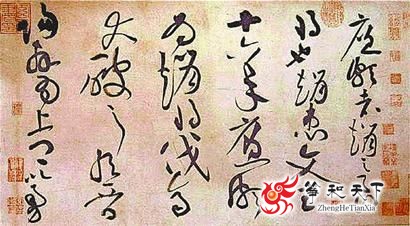 廉頗者趙之良
將也趙惠文王
十六年廉頗
為趙將伐齊
大破之取晉
陽拜為上卿以勇
筝和天下
ZhengHeTianXia